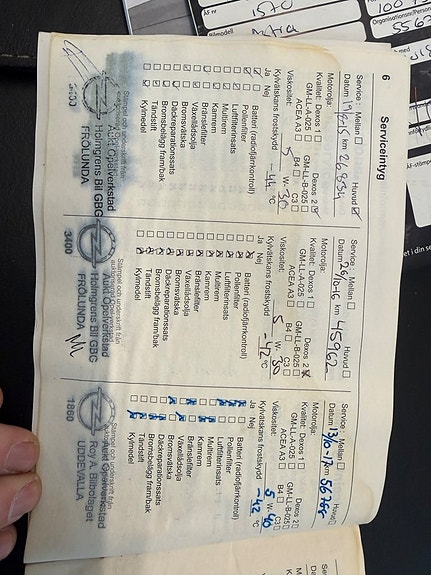 6 Serviceintyg
Service: Mellan Huvud
Datum km 26834
Motorolja:
Kvalitet: Dexos 1 Dexos 2
GM-LL-A-025 GM-LL-B-025
ACEA A3 B4 C3
Viskositet: 5 W- 30
Kylvätskans frostskydd -44 °C
Ja Nej
Batteri (radiofjärrkontroll)
Pollenfilter
Luftfilterinsats
Multirem
Kamrem
Bränslefilter
Växellådsolja
Bromsvätska
Däckreparationssats
Bromsbelägg fram/bak
Tändstift
Kylmedel
Aukt Opelverkstad
Holmgrens Bil GBG
FRÖLUNDA
Service: Mellan Huvud
Datum 26/10-16 km 45962
Motorolja:
Kvalitet: Dexos 1 Dexos 2
GM-LL-A-025 GM-LL-B-025
ACEA A3 B4 C3
Viskositet: 5 W- 30
Kylvätskans frostskydd -42 °C
Ja Nej
Batteri (radiofjärrkontroll)
Pollenfilter
Luftfilterinsats
Multirem
Kamrem
Bränslefilter
Växellådsolja
Bromsvätska
Däckreparationssats
Bromsbelägg fram/bak
Tändstift
Kylmedel
Stämpel och underskrift från
3400
Aukt Opelverkstad
Holmgrens Bil GBG
FRÖLUNDA
Service: Mellan Huvud
Datum km 56768
Motorolja:
Kvalitet: Dexos 1 Dexos 2
GM-LL-A-025 GM-LL-B-025
ACEA A3 B4 C3
Viskositet: 5 W-
Kylvätskans frostskydd -42 °C
Ja Nej
Batteri (radiofjärrkontroll)
Pollenfilter
Luftfilterinsats
Multirem
Kamrem
Bränslefilter
Växellådsolja
Bromsvätska
Däckreparationssats
Bromsbelägg fram/bak
Tändstift
Kylmedel
Stämpel och underskrift från
1860
Roy A. Bilbolaget
UDDEVALLA
1570